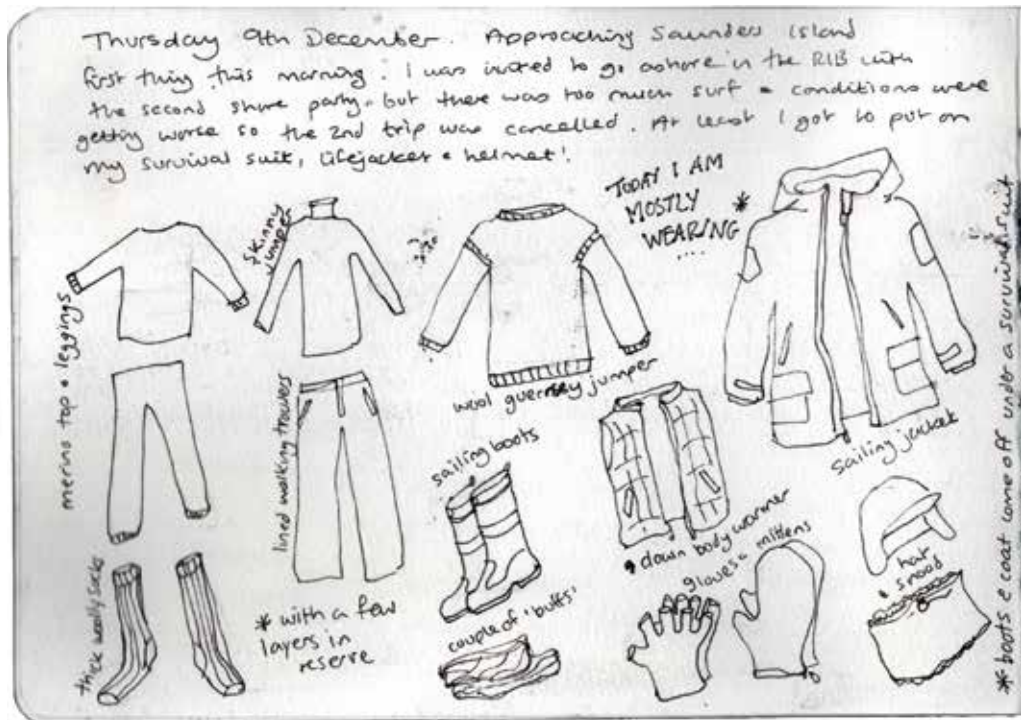 Thursday 9th December. Approaching Saunders Island
first thing this morning. I was invited to go ashore in the RIB with
the second shore party - but there was too much surf & conditions were
getting worse so the 2nd trip was cancelled. At least I got to put on
my survival suit, lifejacket & helmet!
TODAY I AM
MOSTLY
WEARING
....
*
merino top & leggings
skinny
jumper
wool guernsey jumper
sailing jacket
lined walking trousers
sailing boots
down body warmer
gloves & mittens
hat
snood
thick woolly socks
* with a few
layers in
reserve
couple of 'buffs'
* boots & coat come off under a survival suit